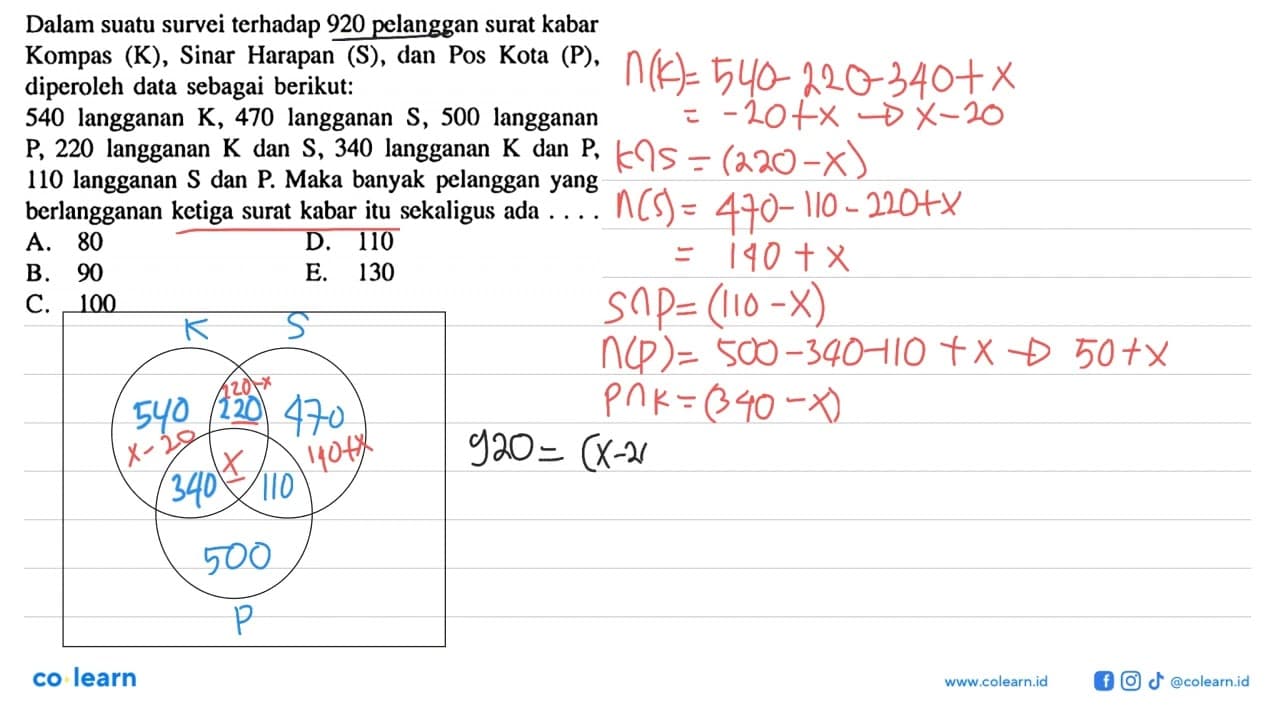 Dalam suatu survei terhadap 920 pelanggan surat kabar
Kompas (K), Sinar Harapan (S), dan Pos Kota (P),
diperoleh data sebagai berikut:
540 langganan K, 470 langganan S, 500 langganan
P, 220 langganan K dan S, 340 langganan K dan P,
110 langganan S dan P. Maka banyak pelanggan yang
berlangganan ketiga surat kabar itu sekaligus ada . . . .
A. 80
D. 110
B. 90
E. 130
C. 100
K S
220-x
540 220 470
x-20 x 140+x
340 110
500
P
n(K)= 540-220-340+x
= -20+x → x-20
K∩S = (220-x)
n(S)= 470-110-220+x
= 140+x
S∩P= (110-x)
n(P)= 500-340-110+x → 50+x
P∩K=(340-x)
920= (x-2
co learn
www.colearn.id
@colearn.id